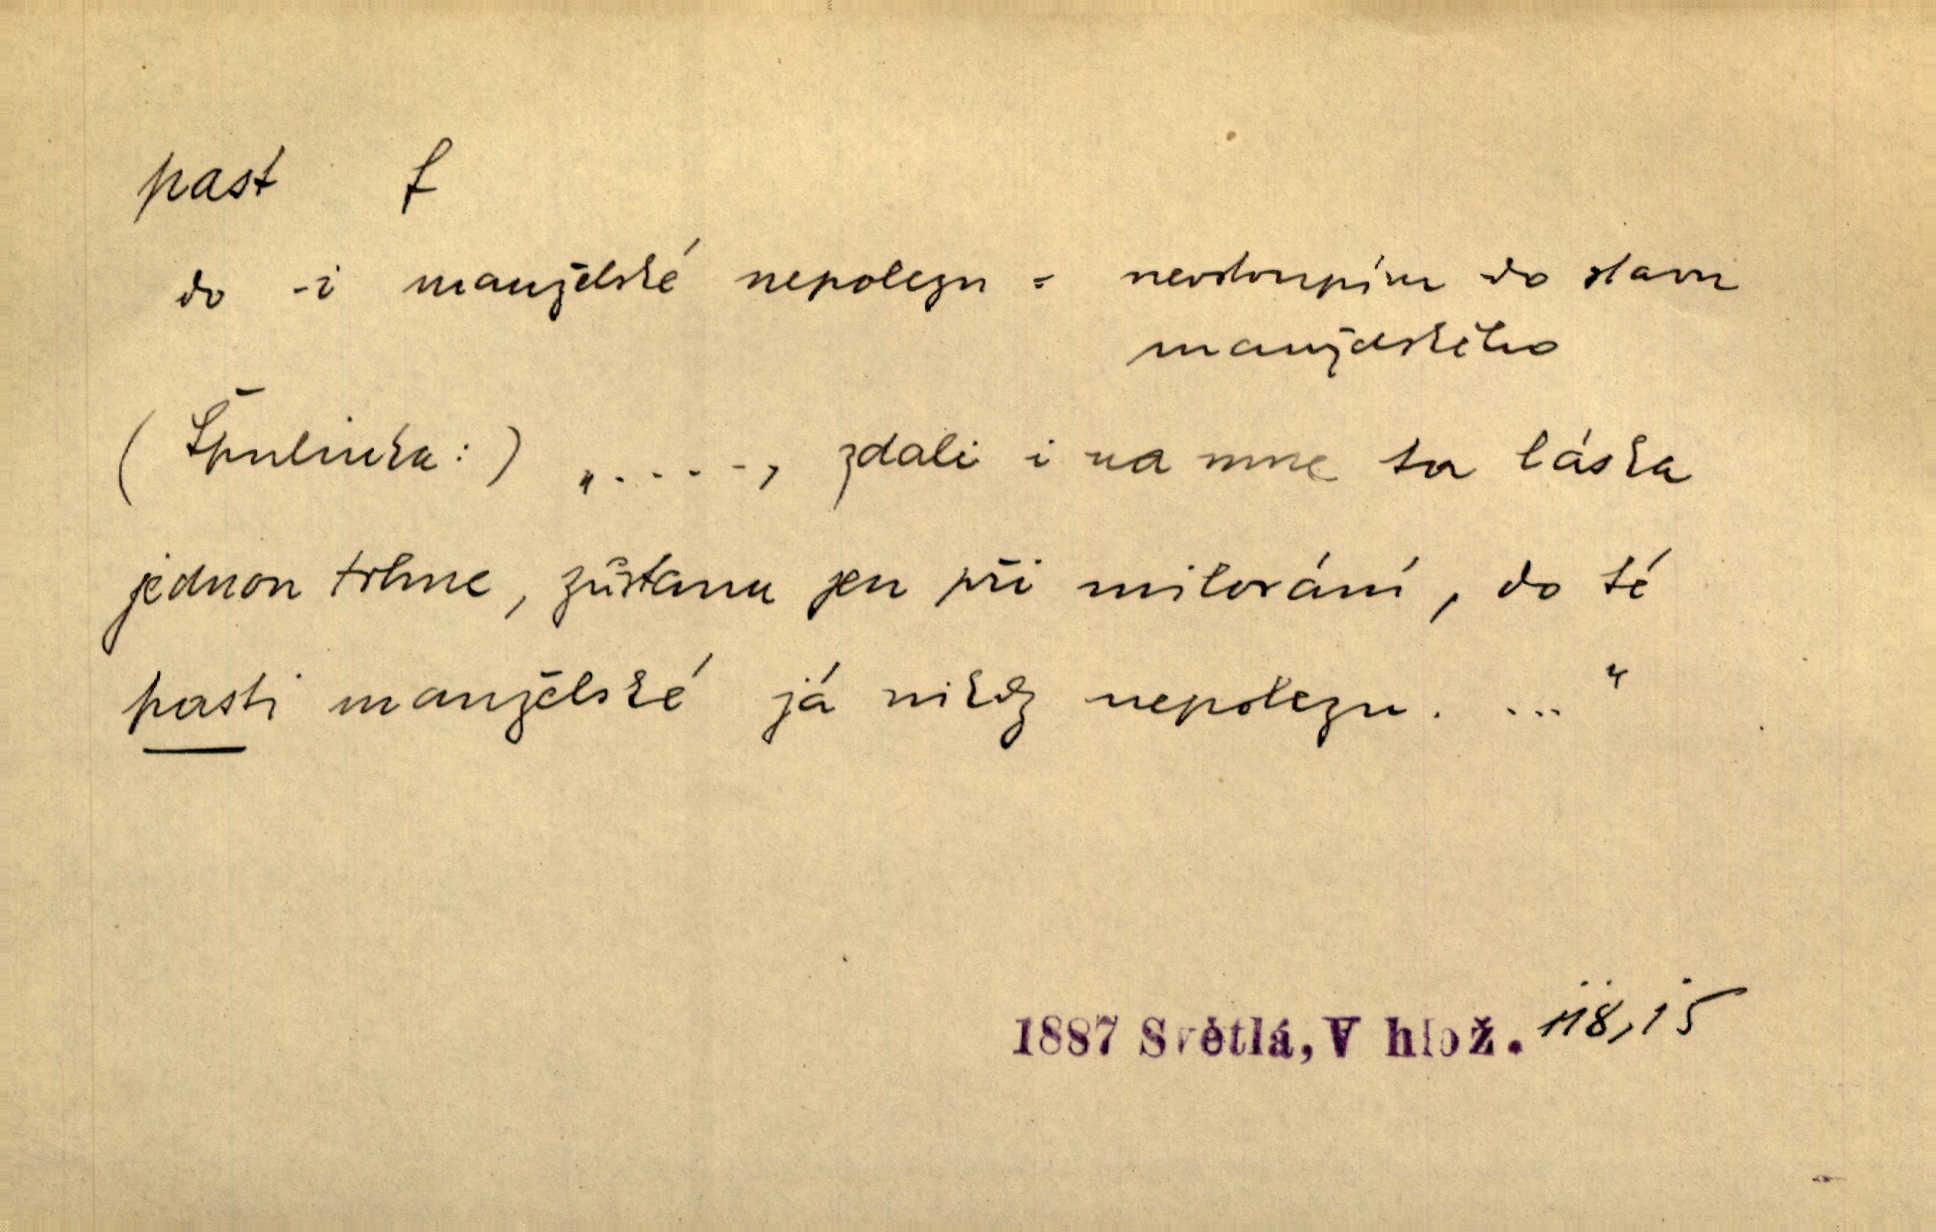 past f
do -i manželské nepolezu = nevstoupím do stavu
manželského
(Špulinka:) „.....‚ zdali i na mne ta láska
jednou trhne, zůstanu jen při milování, do té
pasti manželské já nikdy nepolezu. ..."
1887 Světlá, V hlož. 118,15